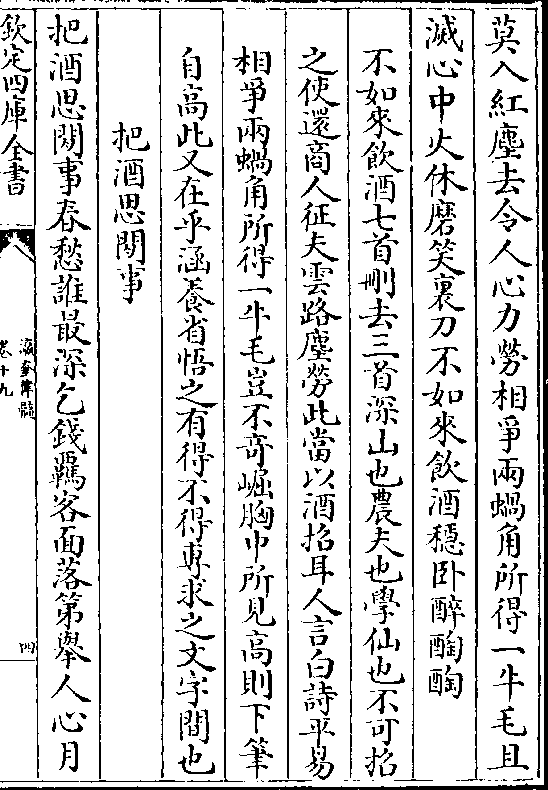 莫入紅塵去令人心力勞相爭兩蝸角所得一牛毛且
滅心中火休磨笑裏刀不如來飲酒穩卧醉酶酶
不如來飲酒七首刪去三首深山也農夫也學仙也不可招
之使還商人征夫雲路塵勞此當以酒招耳人言白詩平易
相爭兩蝸角所得一牛毛豈不奇崛胸中所見高則下筆
自高此又在乎涵養省悟之有得不得專求之文字間也
把酒思閑事
把酒思閑事春愁誰最深乞錢羈客面落第舉人心月
欽定四庫全書
瀛奎律髓
卷十九
四